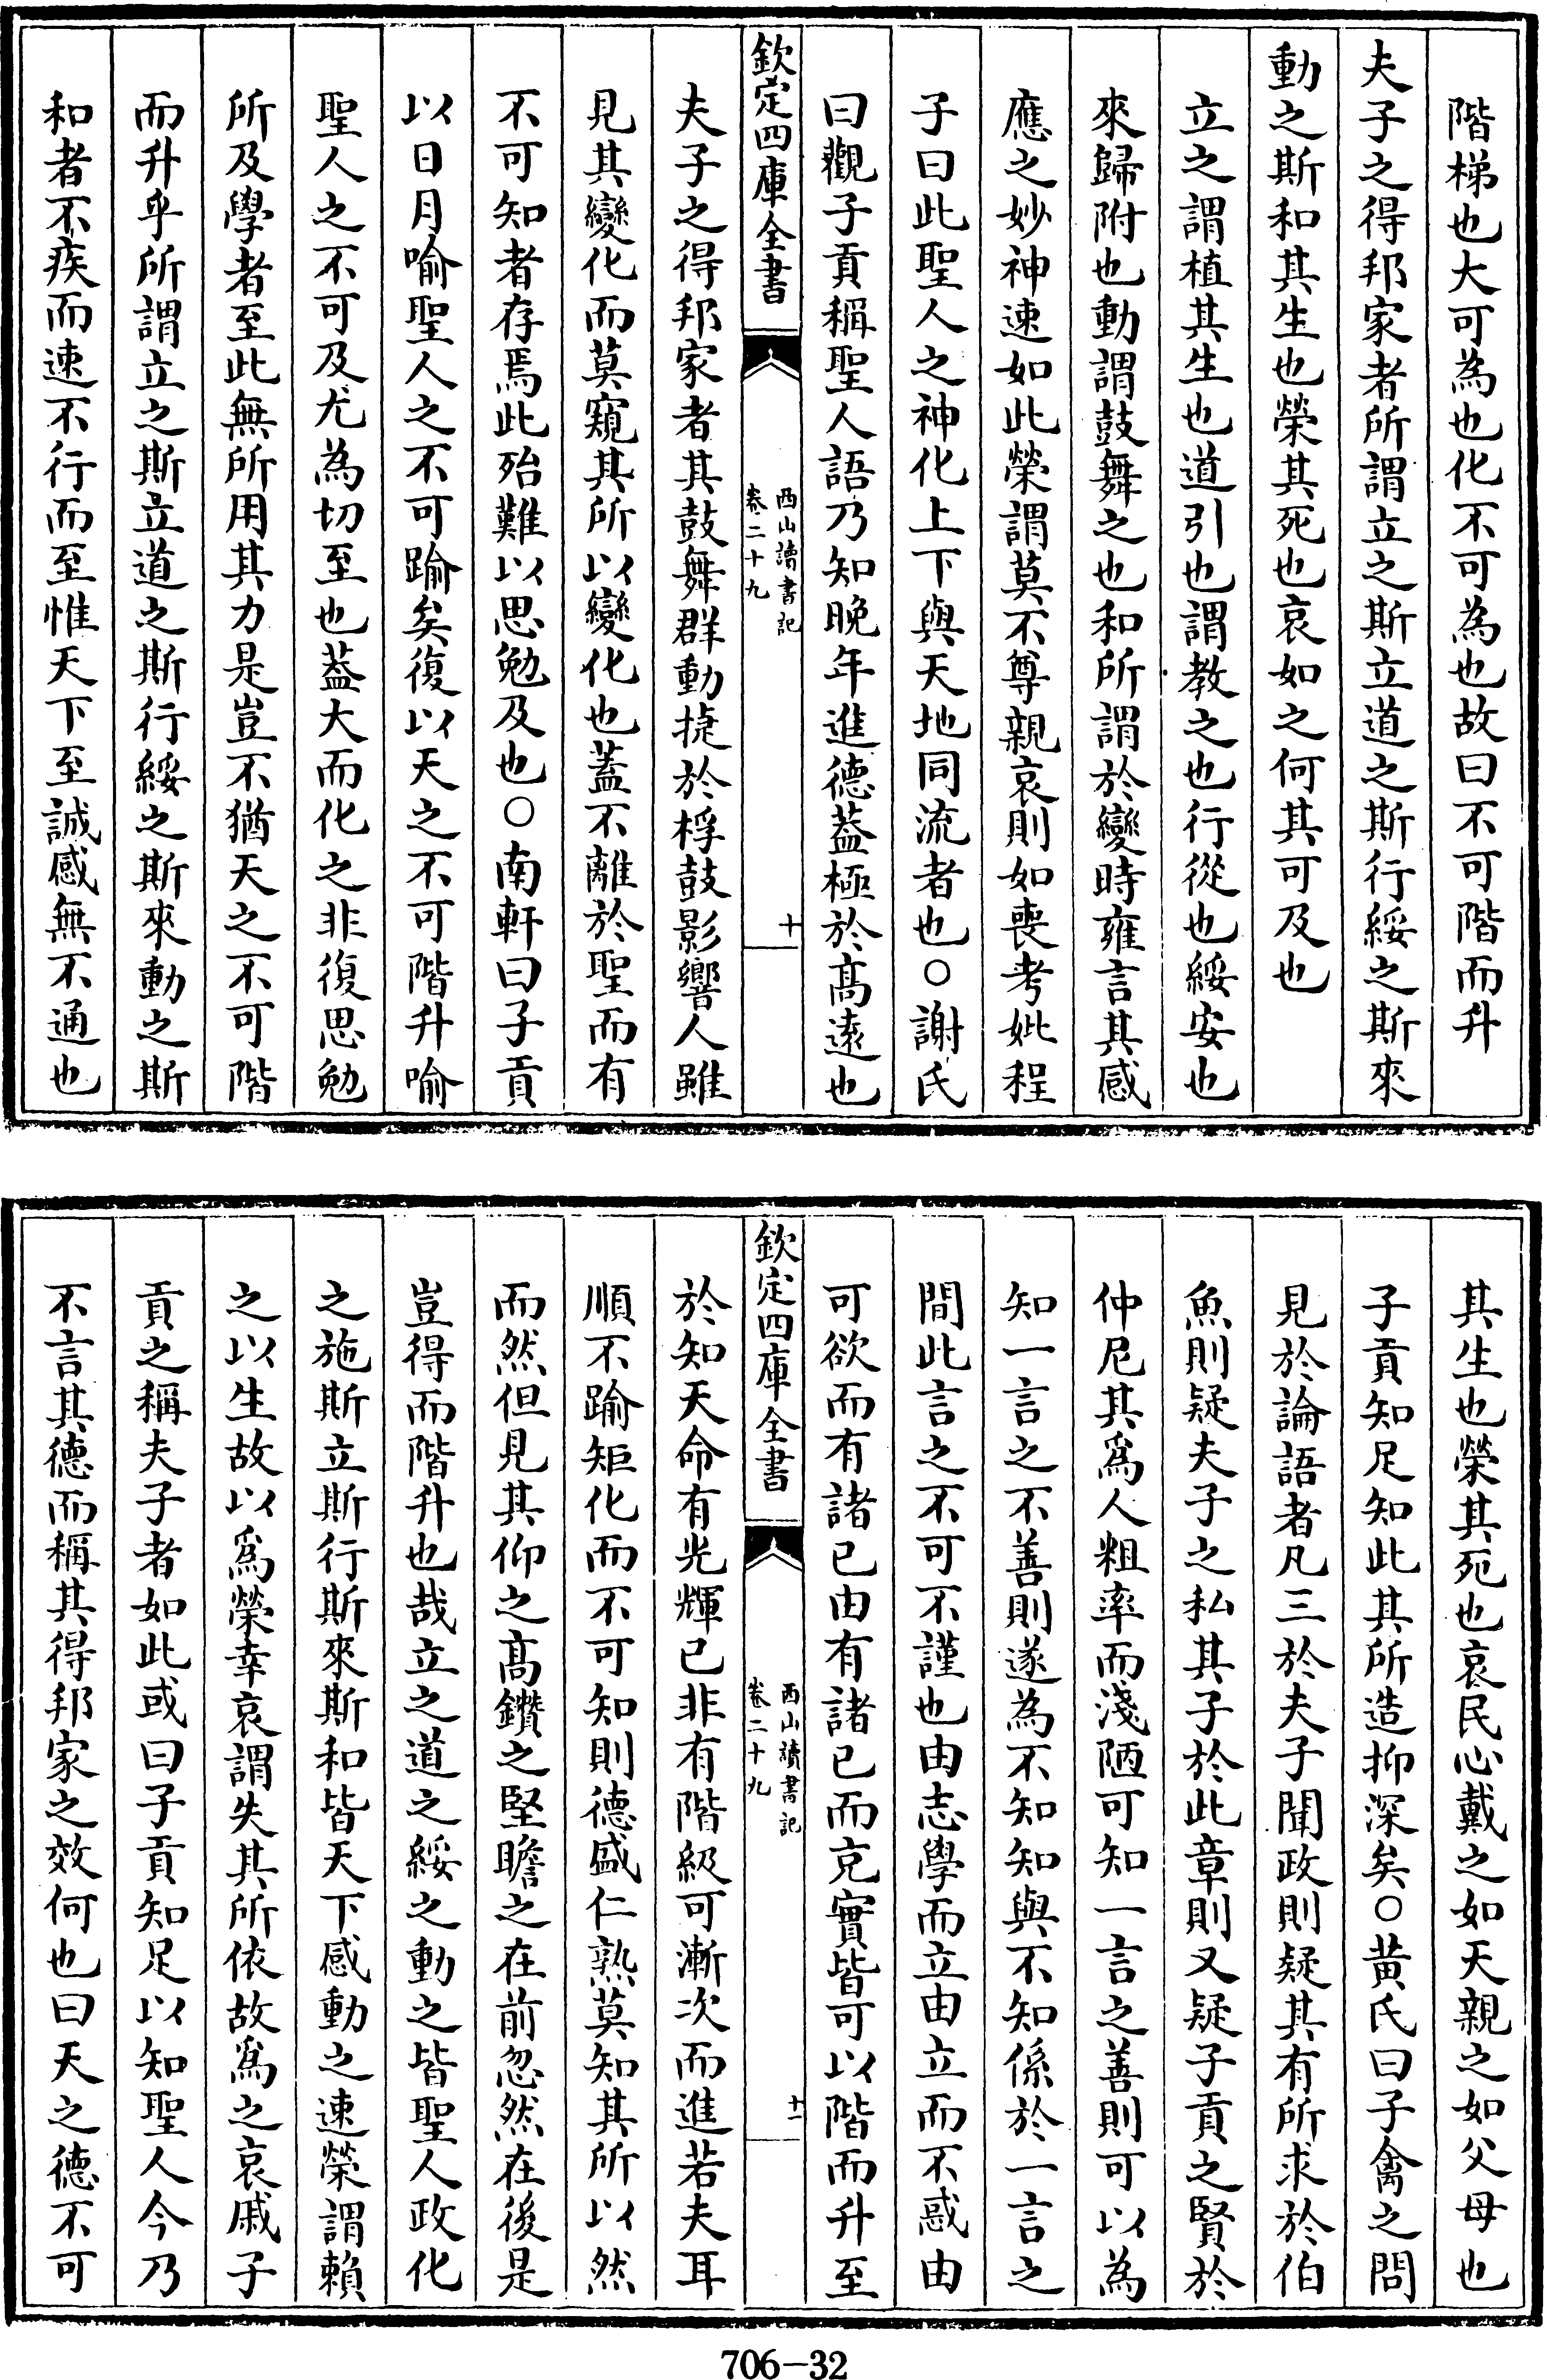 階梯也大可為也化不可為也故曰不可階而升
夫子之得邦家者所謂立之斯立道之斯行綏之斯來
動之斯和其生也榮其死也哀如之何其可及也
立之謂植其生也道引也謂教之也行從也綏安也
來歸附也動謂鼓舞之也和所謂於變時雍言其感
應之妙神速如此榮謂莫不尊親哀則如喪考妣程
子曰此聖人之神化上下與天地同流者也○謝氏
曰觀子貢稱聖人語乃知晚年進德葢極於髙逺也
欽定四庫全書
西山讀書記
卷二十九
十
夫子之得邦家者其鼓舞群動捷於桴鼓影響人雖
見其變化而莫窺其所以變化也蓋不離於聖而有
不可知者存焉此殆難以思勉及也○南軒曰子貢
以日月喻聖人之不可踰矣復以天之不可階升喻
聖人之不可及尤為切至也葢大而化之非復思勉
所及學者至此無所用其力是豈不猶天之不可階
而升乎所謂立之斯立道之斯行綏之斯來動之斯
和者不疾而速不行而至惟天下至誠感無不通也
其生也榮其死也哀民心戴之如天親之如父母也
子貢知足知此其所造抑深矣○黄氏曰子禽之問
見於論語者凡三於夫子聞政則疑其有所求於伯
魚則疑夫子之私其子於此章則又疑子貢之賢於
仲尼其爲人粗率而淺陋可知一言之善則可以為
知一言之不善則遂為不知知與不知係於一言之
間此言之不可不謹也由志學而立由立而不惑由
可欲而有諸已由有諸已而充實皆可以階而升至
欽定四庫全書
西山讀書記
卷二十九
十一
於知天命有光輝已非有階級可漸次而進若夫耳
順不踰矩化而不可知則德盛仁熟莫知其所以然
而然但見其仰之髙鑽之堅瞻之在前忽然在後是
豈得而階升也哉立之道之綏之動之皆聖人政化
之施斯立斯行斯來斯和皆天下感動之速榮謂賴
之以生故以爲榮幸哀謂失其所依故爲之哀戚子
貢之稱夫子者如此或曰子貢知足以知聖人今乃
不言其德而稱其得邦家之效何也曰天之德不可
706-32